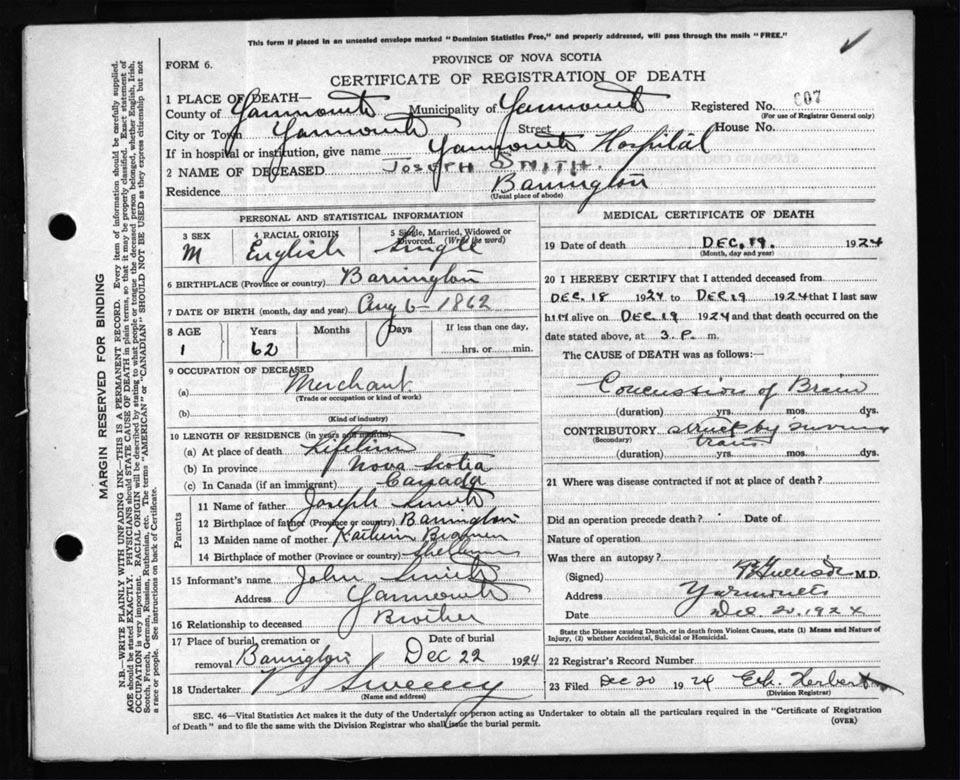 This form if placed in an unsealed envelope marked "Dominion Statistics Free," and properly addressed, will pass through the mails "FREE."
FORM 6.
PROVINCE OF NOVA SCOTIA
CERTIFICATE OF REGISTRATION OF DEATH
1 PLACE OF DEATH—
County of Yarmouth Municipality of Yarmouth Registered No. 607
(For use of Registrar General only)
City or Town Yarmouth Street House No.
If in hospital or institution, give name Yarmouth Hospital
2 NAME OF DECEASED JOSEPH SMITH.
Residence Barrington
(Usual place of abode)
PERSONAL AND STATISTICAL INFORMATION
3 SEX 4 RACIAL ORIGIN 5 Single, Married, Widowed or Divorced. (Write the word)
M English Single
6 BIRTHPLACE (Province or country) Barrington
7 DATE OF BIRTH (month, day and year) Aug 6 - 1862
8 AGE Years Months Days If less than one day,
1 62 hrs. or min.
9 OCCUPATION OF DECEASED
(a) Merchant
(Trade or occupation or kind of work)
(b)
(Kind of industry)
10 LENGTH OF RESIDENCE (in years and months)
(a) At place of death Lifetime
(b) In province Nova Scotia
(c) In Canada (if an immigrant) Canada
Parents
11 Name of father Joseph Smith
12 Birthplace of father (Province or country) Barrington
13 Maiden name of mother
14 Birthplace of mother (Province or country) Shelburne
15 Informant's name John Smith
Address Yarmouth
16 Relationship to deceased Brother
17 Place of burial, cremation or removal Barrington Date of burial Dec 22 1924
18 Undertaker V S Sweeny
(Name and address)
MEDICAL CERTIFICATE OF DEATH
19 Date of death DEC. 19. 1924
(Month, day and year)
20 I HEREBY CERTIFY that I attended deceased from
DEC. 18 1924 to DEC 19 1924 that I last saw
him alive on DEC 19 1924 and that death occurred on the
date stated above, at 3. P. m.
The CAUSE of DEATH was as follows:
Concussion of Brain
(duration) yrs. mos. dys.
CONTRIBUTORY struck by moving
(Secondary) train
(duration) yrs. mos. dys.
21 Where was disease contracted if not at place of death?
Did an operation precede death? Date of
Nature of operation
Was there an autopsy?
(Signed) M.D.
Address Yarmouth
Date Dec. 20. 1924
State the Disease causing Death, or in death from Violent Causes, state (1) Means and Nature of
Injury, (2) whether Accidental, Suicidal or Homicidal.
22 Registrar's Record Number
23 Filed Dec 20 1924 Herbert
(Division Registrar)
SEC. 46—Vital Statistics Act makes it the duty of the Undertaker or person acting as Undertaker to obtain all the particulars required in the "Certificate of Registration
of Death" and to file the same with the Division Registrar who shall issue the burial permit.
(OVER)
MARGIN RESERVED FOR BINDING
N.B.—WRITE PLAINLY WITH UNFADING INK—THIS IS A PERMANENT RECORD. Every item of information should be carefully supplied.
AGE should be stated EXACTLY. PHYSICIANS should STATE CAUSE OF DEATH in plain terms, so that it may be properly classified. Exact statement of
OCCUPATION is very important. RACIAL ORIGIN will be described by stating to what people or tongue the deceased person belonged, whether English, Irish,
Scotch, French, German, Russian, Ruthenian, etc. The terms "AMERICAN" or "CANADIAN" SHOULD NOT BE USED as they express citizenship but not
a race or people. See instructions on back of Certificate.